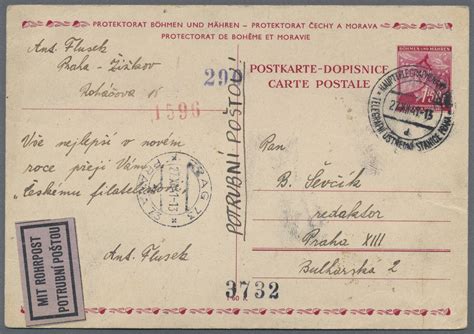 PROTEKTORAT BÖHMEN UND MÄHREN – PROTEKTORAT ČECHY A MORAVA
PROTECTORAT DE BOHÊME ET MORAVIE
Ant. Flusek
Praha - Žižkov
Roháčova 15
1596
Vše nejlepší v novém
roce přeji Vám
"Českému filatelistovi"
Ant. Flusek
MIT ROHRPOST
POTRUBNÍ POŠTOU
POTRUBNÍ POŠTOU
POSTKARTE-DOPISNICE
CARTE POSTALE
BÖHMEN UND MÄHREN
TELEGRAFNÍ ÚSTŘEDNÍ STANICE PRAHA
27.XII.41-13
PRAG 73
Pan
B. Ševčík
redaktor
Praha XIII
Bulharská 2
3732